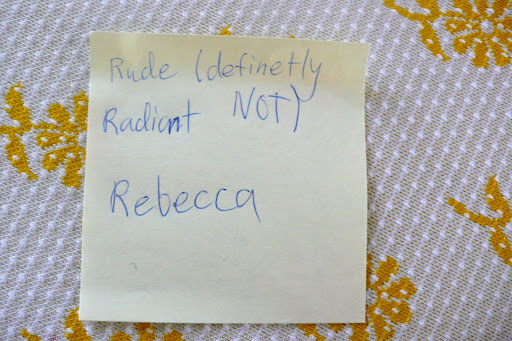 Rude (definetly
Radiant NOT)
Rebecca